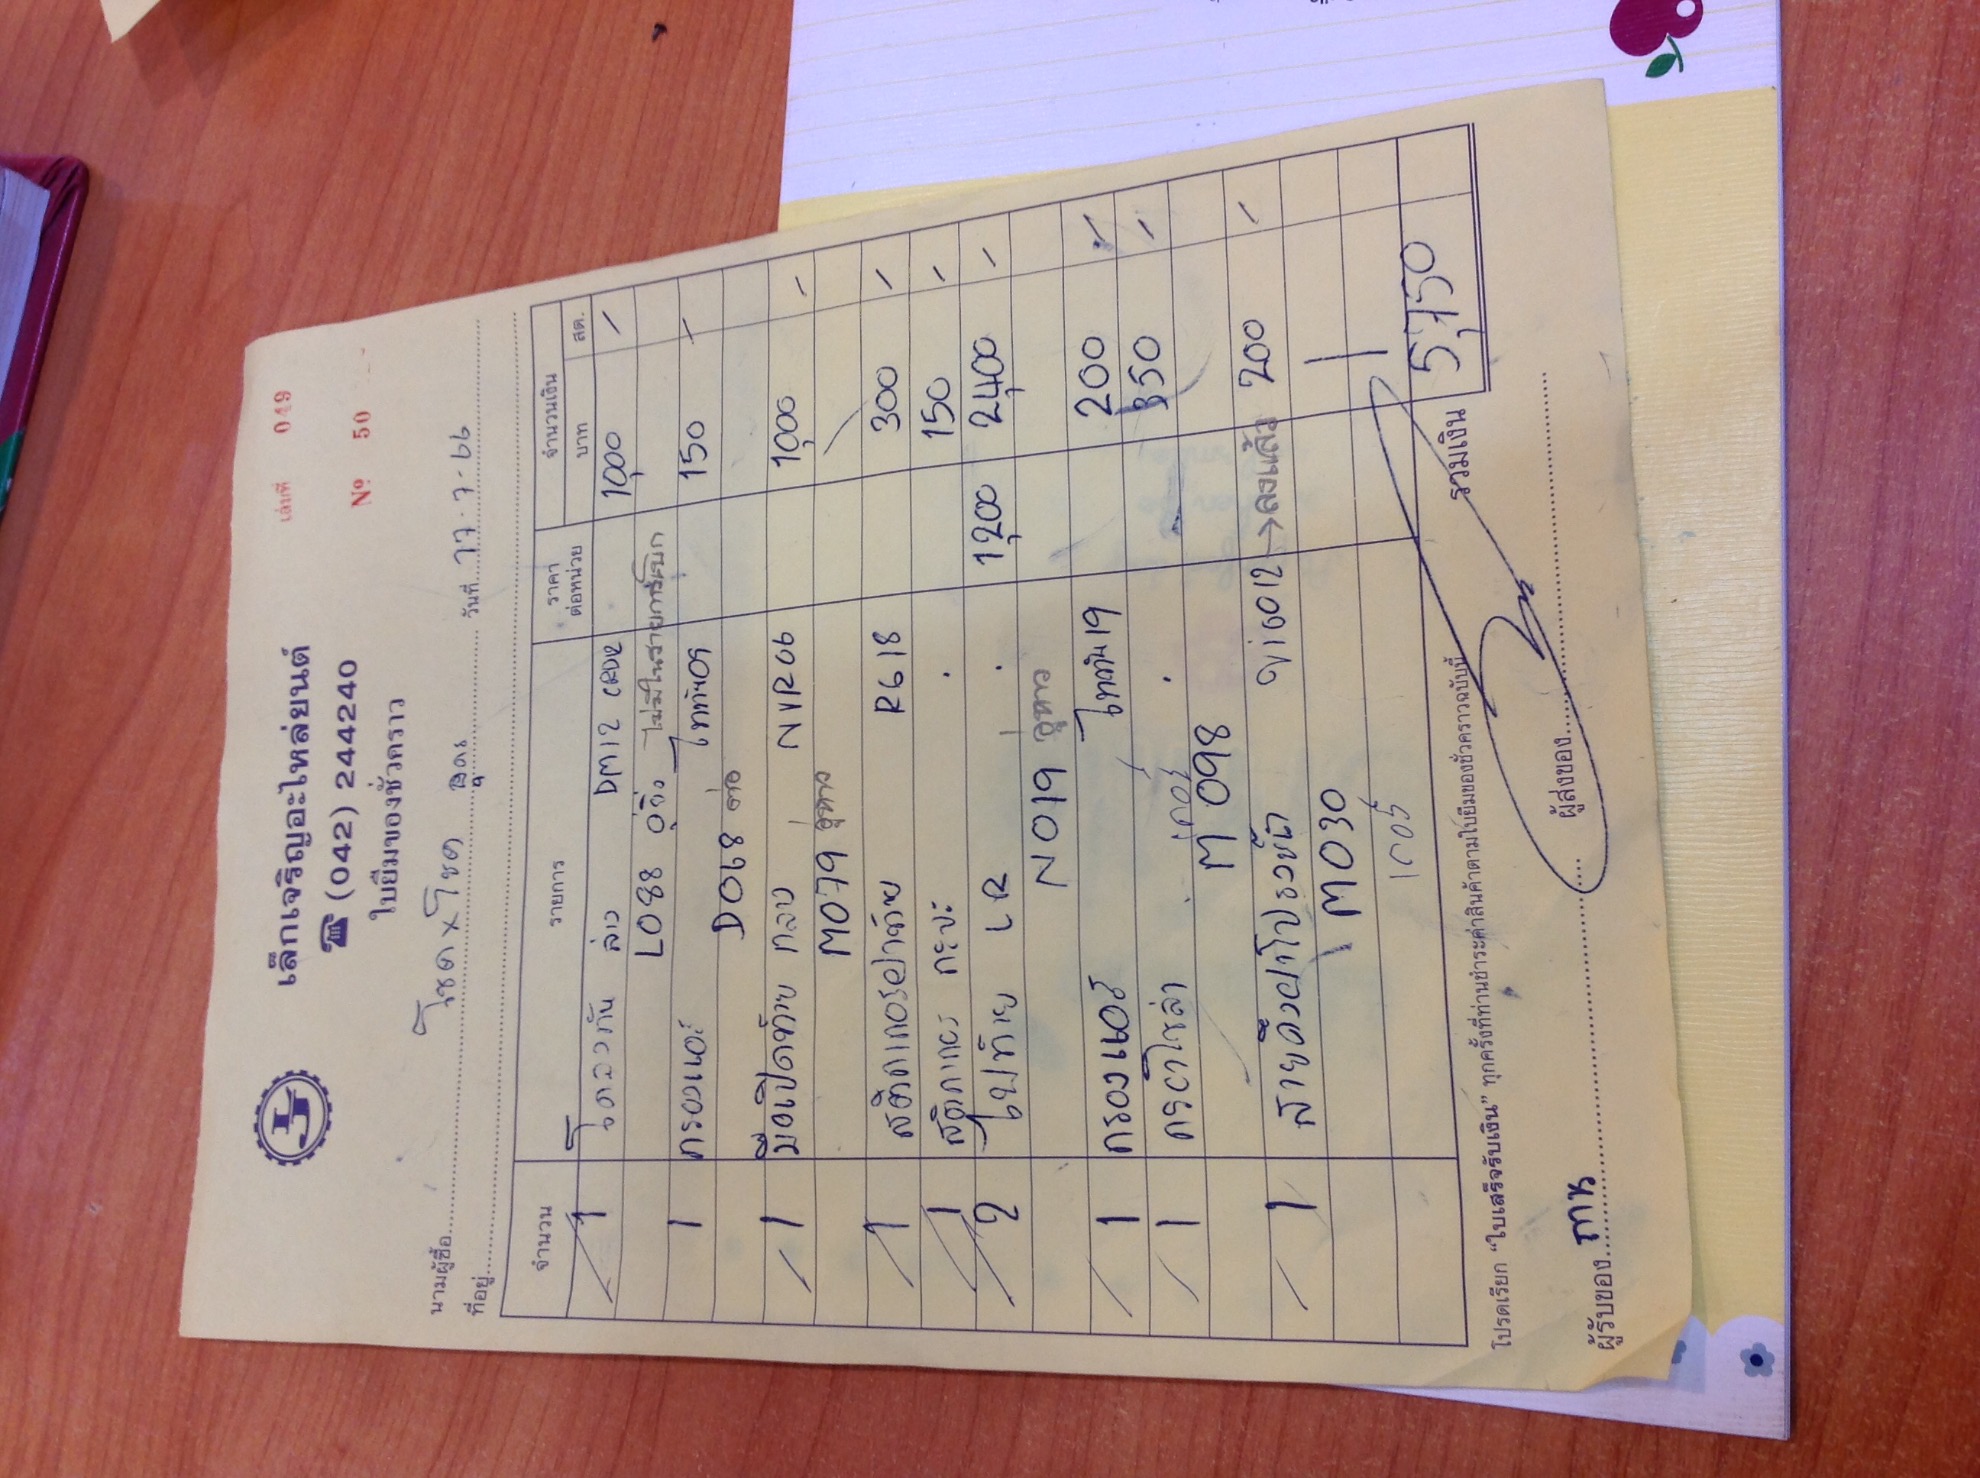 เล่มที่ 049
เล็กเจริญอะไหล่ยนต์
☎ (042) 244240
№ 50
ใบยืมของชั่วคราว
นามผู้ซื้อ โชค x โชค
ที่อยู่ วันที่ 77.7.66
จำนวน รายการ ราคาต่อหน่วย จำนวนเงิน บาท สต.
1 ล่าง DM12 1,000 -
L088 อู่ยิ่ง ไม่มีในรายการเบิก
1 กรองแอร์ ไททัน09 150 -
D068
1 มือเปิดท้าย กลาง NVR06 1,000 -
M079 อู่หาว
1 สติกเกอร์ฝาท้าย R618 300 -
1 สติกเกอร์ กระบะ . 150 -
2 ไฟท้าย LR . 1,200 2,400 -
N019 อู่หาว
1 กรองแอร์ ไททัน19 200 -
1 . 350 -
M098 เกอร์
1 สายดึงฝากระโปรง Vigo12 → ลงแล้ว 200 -
M030
เกอร์
รวมเงิน 5,750
โปรดเรียก “ใบเสร็จรับเงิน” ทุกครั้งที่ท่านชำระค่าสินค้าตามใบยืมของชั่วคราวฉบับนี้
ผู้รับของ ผู้ส่งของ